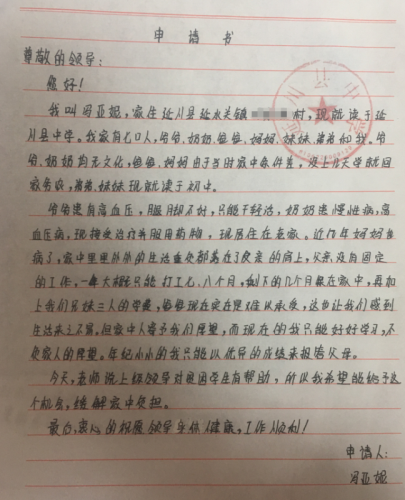 申请书
尊敬的领导:
您好!
我叫冯亚妮,家住延川县延水关镇 村,现就读于延
川县中学。我家有七口人,爷爷、奶奶、爸爸、妈妈、妹妹、弟弟和我。爷
爷、奶奶均无文化,爸爸、妈妈由于当时家中条件差,没上大学就回
家务农,弟弟、妹妹现就读于初中。
爷爷患有高血压,腿 不好,只能干轻活,奶奶患慢性病,高
血压病,现接受治疗并服用药物,现居住在老家。近几年妈妈生
病了,家中里里外外的生活重负都落在了父亲的肩上,父亲没有固定
的工作,一年大概只能打工七、八个月,剩下的几个月都在家中,再加
上我们兄妹三人的学费,爸爸现在实在是难以承受,这也让我们感到
生活来之不易,但家中人寄予我们厚望,而现在的我只能好好学习,不
负家人的厚望。年纪小小的我只能以优异的成绩来报答父母。
今天,老师说上级领导对贫困学生有帮助,所以我希望能给予这
个机会,缓解家中负担。
最后,衷心的祝愿领导身体健康,工作顺利!
申请人:
冯亚妮
川县中学